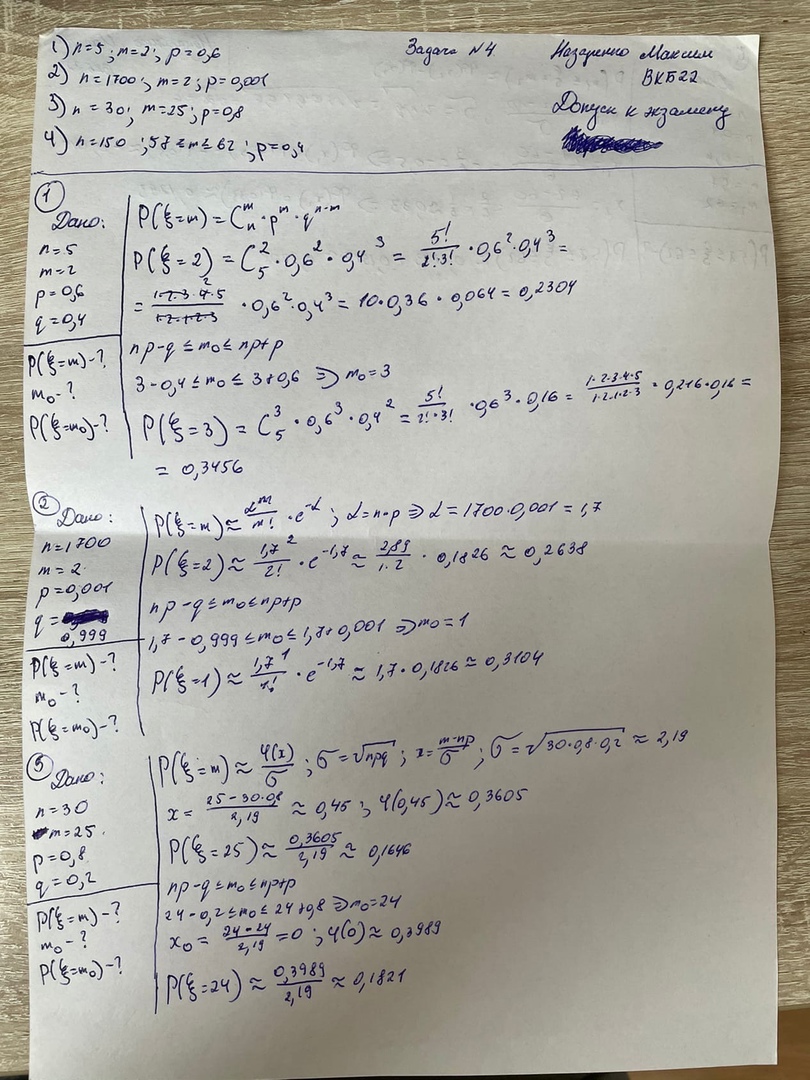 1) n=5 ; m=2 ; p=0,6
Задача №4
Назаренко Максим
2) n=1700 ; m=2 ; p=0,001
ВКБ22
3) n=30 ; m=25 ; p=0,8
Допуск к экзамену
4) n=150 ; 57≤m≤62 ; p=0,4
1
Дано:
n=5
m=2
p=0,6
q=0,4
P(ξ=m)-?
m₀-?
P(ξ=m₀)-?
P(ξ=m) = Cₙᵐ · pᵐ · qⁿ⁻ᵐ
P(ξ=2) = C₅² · 0,6² · 0,4³ = 5!/(2!·3!) · 0,6² · 0,4³ =
= (1·2·3·4·5)/(1·2·1·2·3) · 0,6² · 0,4³ = 10·0,36·0,064 = 0,2304
np-q ≤ m₀ ≤ np+p
3-0,4 ≤ m₀ ≤ 3+0,6 ⇒ m₀=3
P(ξ=3) = C₅³ · 0,6³ · 0,4² = 5!/(2!·3!) · 0,6³ · 0,16 = (1·2·3·4·5)/(1·2·1·2·3) · 0,216·0,16 =
= 0,3456
2
Дано:
n=1700
m=2
p=0,001
q=
0,999
P(ξ=m)-?
m₀-?
P(ξ=m₀)-?
P(ξ=m) ≈ αᵐ/m! · e^-α ; α=n·p ⇒ α = 1700·0,001 = 1,7
P(ξ=2) ≈ 1,7²/2! · e^-1,7 ≈ 2,89/(1·2) · 0,1826 ≈ 0,2638
np-q ≤ m₀ ≤ np+p
1,7-0,999 ≤ m₀ ≤ 1,7+0,001 ⇒ m₀=1
P(ξ=1) ≈ 1,7¹/1! · e^-1,7 ≈ 1,7·0,1826 ≈ 0,3104
3
Дано:
n=30
m=25
p=0,8
q=0,2
P(ξ=m)-?
m₀-?
P(ξ=m₀)-?
P(ξ=m) ≈ φ(x)/σ ; σ=√npq ; x=(m-np)/σ ; σ=√(30·0,8·0,2) ≈ 2,19
x = (25-30·0,8)/2,19 ≈ 0,45 ; φ(0,45) ≈ 0,3605
P(ξ=25) ≈ 0,3605/2,19 ≈ 0,1646
np-q ≤ m₀ ≤ np+p
24-0,2 ≤ m₀ ≤ 24+0,8 ⇒ m₀=24
x₀ = (24-24)/2,19 = 0 ; φ(0) ≈ 0,3989
P(ξ=24) ≈ 0,3989/2,19 ≈ 0,1821